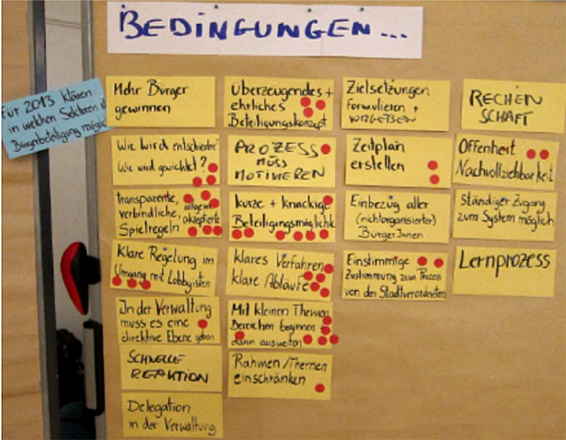 BEDINGUNGEN...
Für 2013 klären
in welchen Sektoren ist
Bürgerbeteiligung möglich
Mehr Bürger
gewinnen
Wie wird entschieden?
Wie wird gewichtet?
Transparente,
verbindliche, akzeptierte
Spielregeln
Klare Regelung im
Umgang mit Lobbyisten
In der Verwaltung
muss es eine
direktive Ebene geben
SCHNELLE
REAKTION
Delegation
in der Verwaltung
Überzeugendes +
ehrliches
Beteiligungskonzept
PROZESS
MUSS
MOTIVIEREN
kurze + knackige
Beteiligungsmöglichk
klares Verfahren
klare Abläufe
Mit kleinen Themen
Bereichen beginnen
dann ausweiten
Rahmen/Themen
einschränken
Zielsetzungen
formulieren +
VORGEBEN
Zeitplan
erstellen
Einbezug aller
(nichtorganisierter)
BürgerInnen
Einstimmige
Zustimmung zum Prozess
von den Stadtverordneten
RECHEN
SCHAFT
Offenheit
Nachvollziehbarkeit
Ständiger Zugang
zum System möglich
Lernprozess